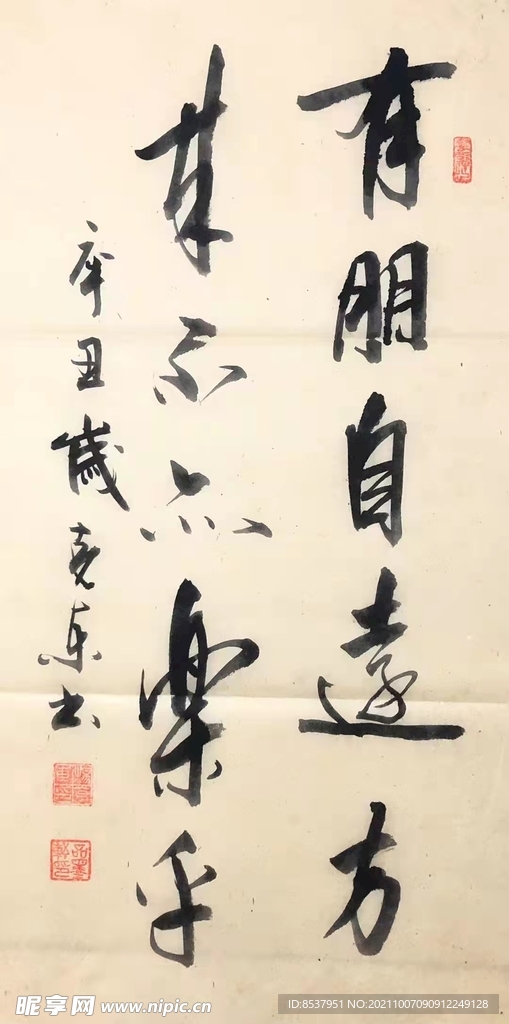 有朋自遠方
来不亦樂乎
辛丑歲克東书
昵享网 www.nipic.cn
ID:8537951 NO:20211007090912249128